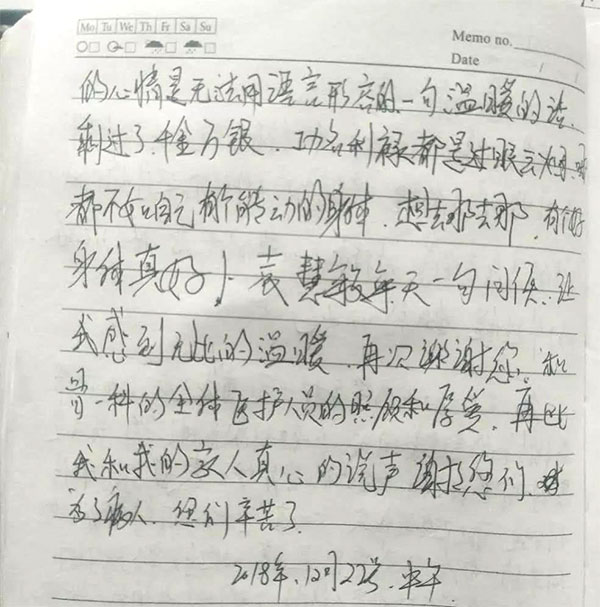 Mo Tu We Th Fr Sa Su
Memo no.
Date / /
的心情是无法用语言形容的.一句温暖的话.
剩过了.千金万银.功名利禄都是过眼云烟.
都不如自己有个能动的身体.想去那去那.有个好
身体真好!.袁慧敏每天一句问候.让
我感到无比的温暖.再次谢谢您.和
骨一科的全体医护人员的照顾和厚爱.再此
我和我的家人真心的说声谢谢您们.
为了病人.您们辛苦了.
2018年.12月22号.中午.